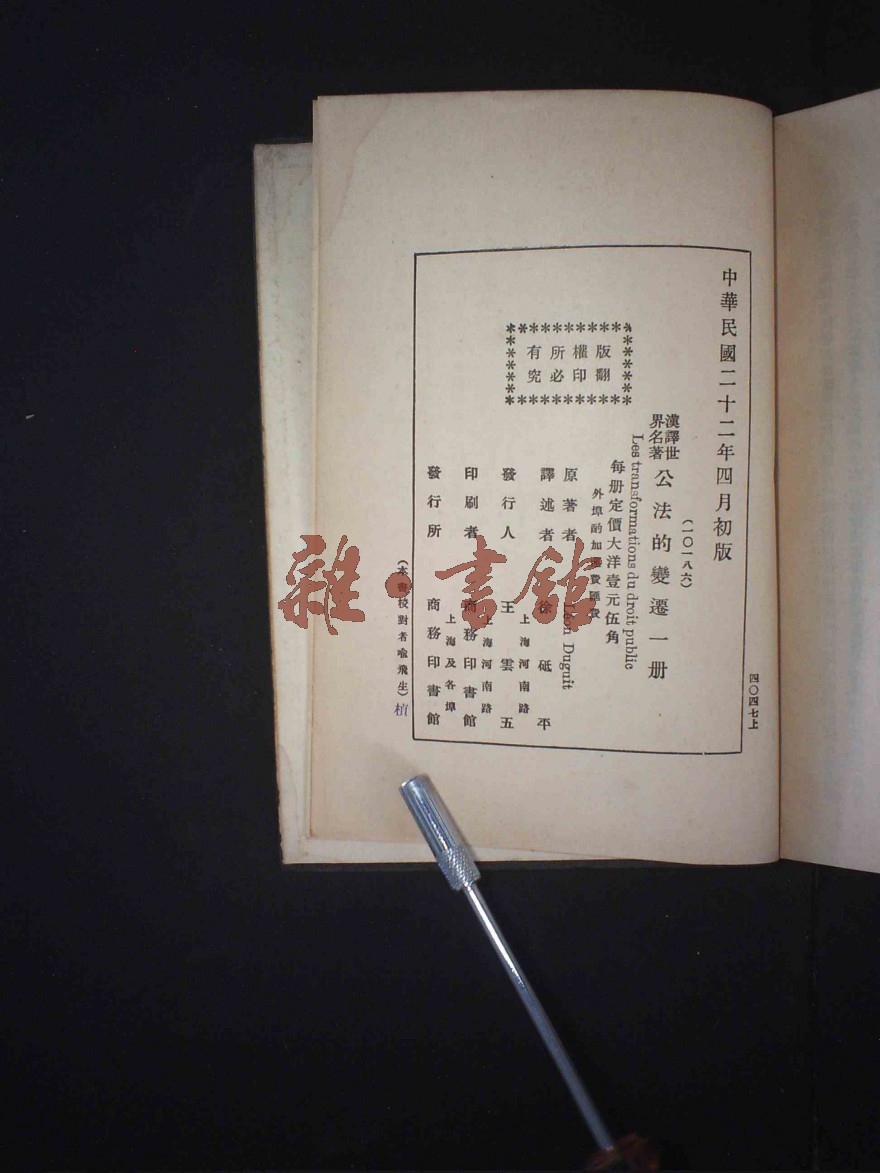 中華民國二十二年四月初版
四〇四七上
(一〇一八六)
漢譯世界名著 公法的變遷一册
Les transformations du droit public
每册定價大洋壹元伍角
外埠酌加運費匯費
版權所有
翻印必究
原著者 Léon Duguit
譯述者 徐砥平
上海河南路
發行人 王雲五
上海河南路
印刷者 商務印書館
上海及各埠
發行所 商務印書館
(本書校對者喩飛生)
楨
雜·書館